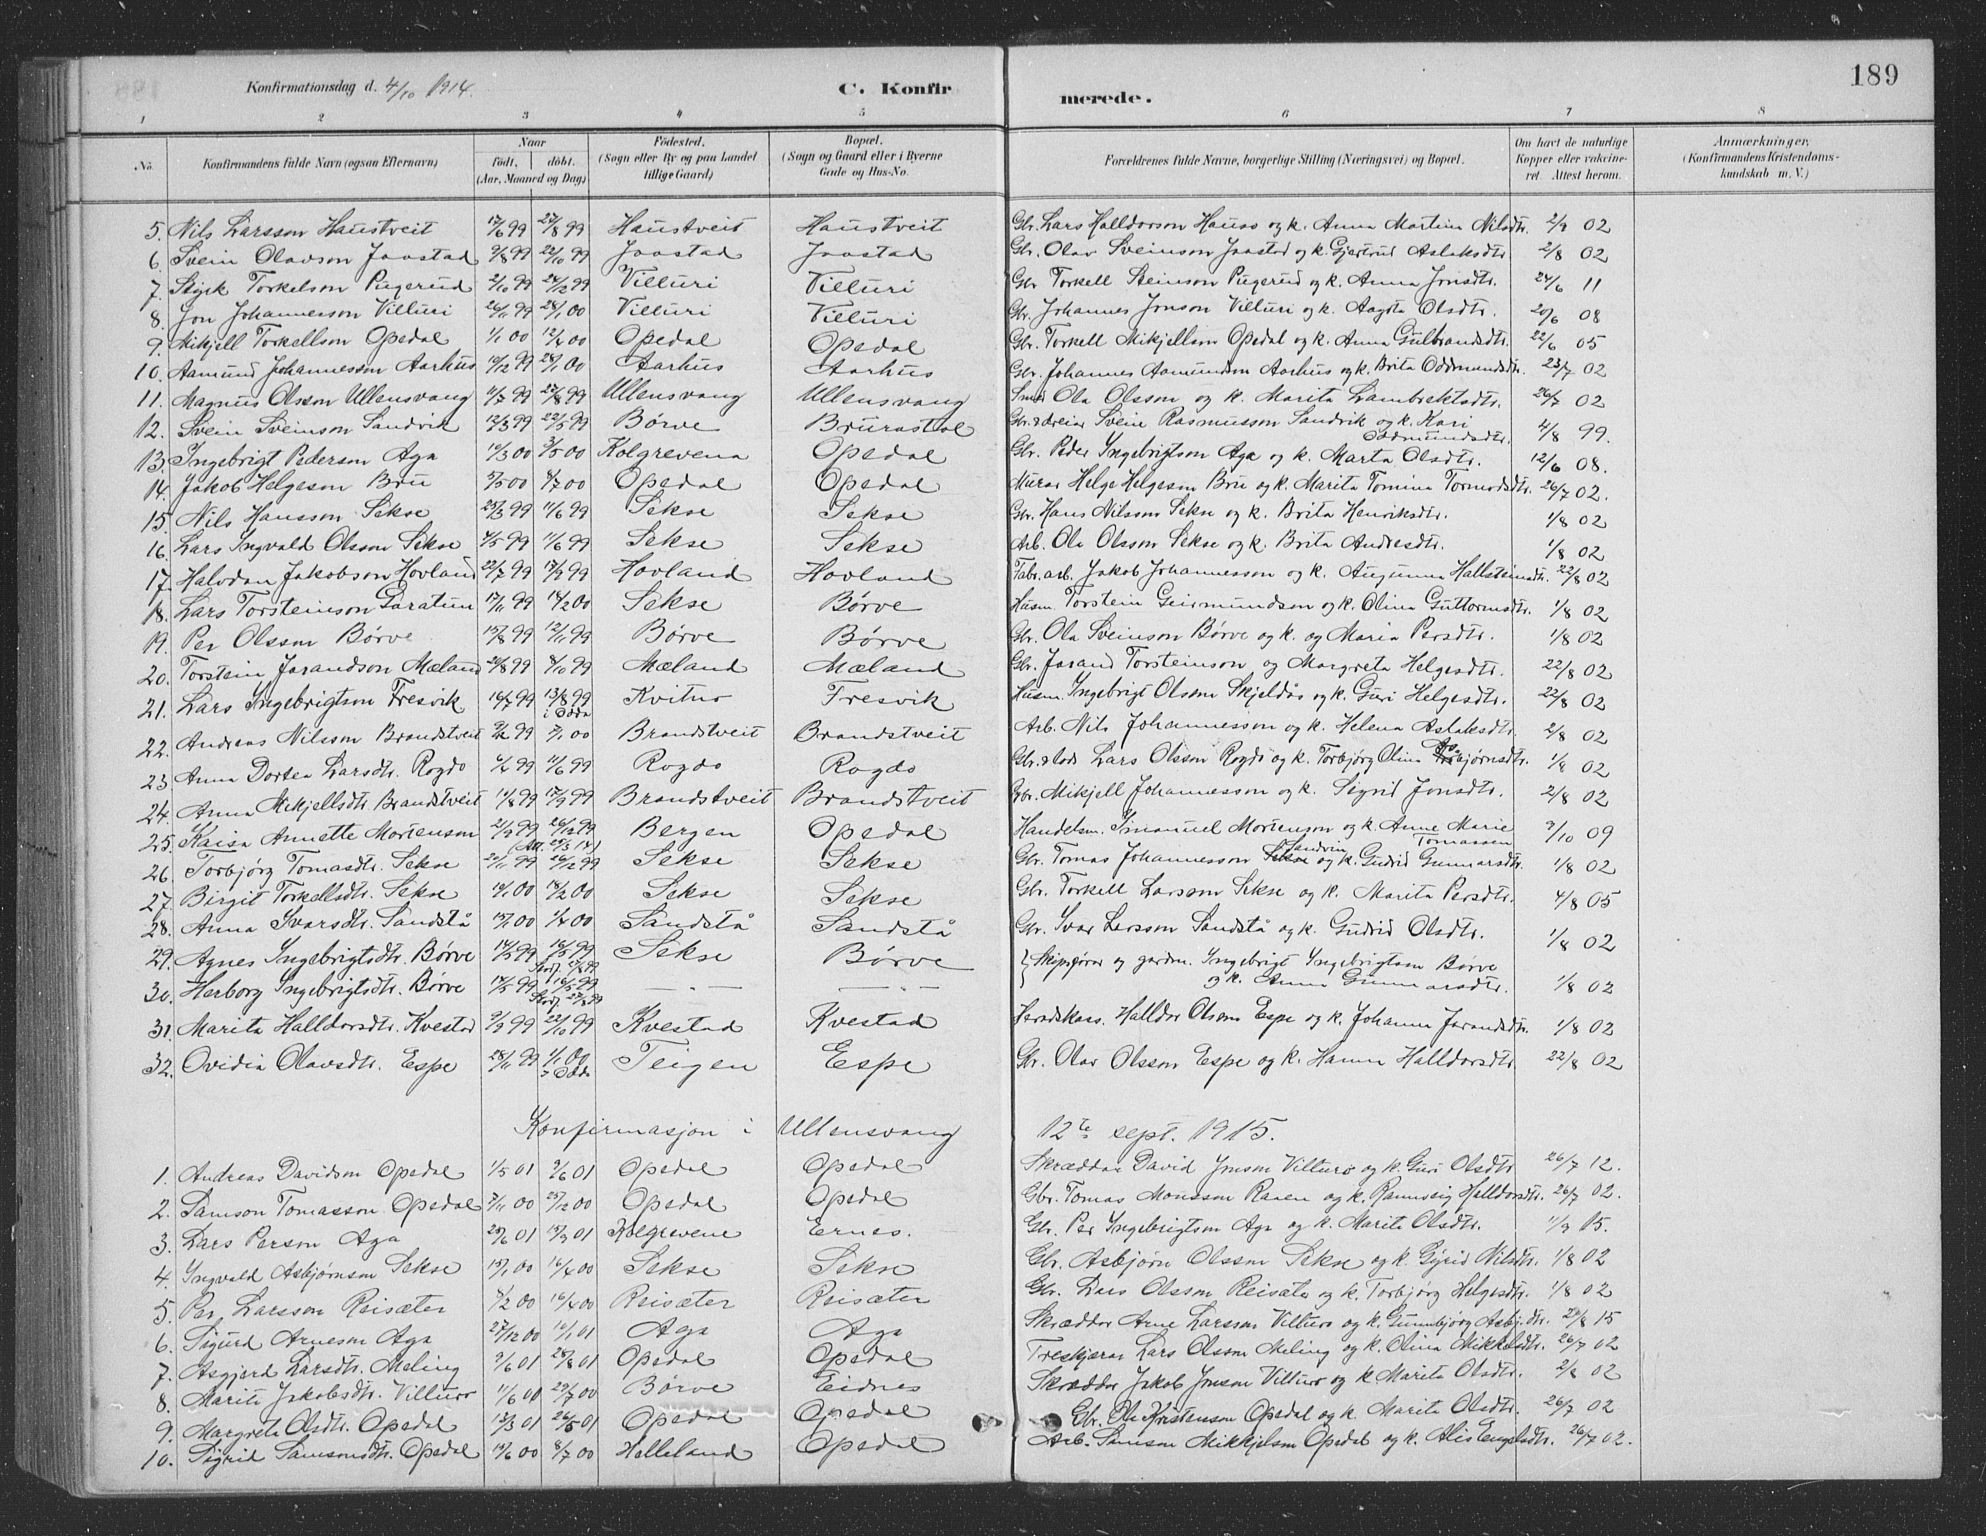 Konfirmationsdag d. 4/10 1914. C. Konfir merede. 189
1 2 3 4 5 6 7 8
No. Konfirmandens fulde Navn (ogsaa Efternavn) Naar født, døbt. (Aar, Maaned og Dag) Fødested. (Sogn eller By og paa Landet tillige Gaard) Bopæl. (Sogn og Gaard eller i Byerne Gade og Hus-No. Forældrenes fulde Navne, borgerlige Stilling (Næringsvei) og Bopæl. Om havt de naturlige Kopper eller vakcineret. Attest herom. Anmærkninger, (Konfirmandens Kristendomskundskab m. V.)
5. Nils Larsson Haustveit 17/6 99 27/8 99 Haustveit Haustveit Gbr. Lars Halldorson Hauso og k. Anna Martina Nilsdtr. 2/9 02
6. Svein Olavson Jaastad 9/8 99 22/10 99 Jaastad Jaastad Gbr. Olav Sveinson Jaastad og k. Gjertrud Aslaksdtr 2/8 02
7. Torkelson Pugerud 2/10 99 24/12 99 Villuri Villuri Gbr Torkell Steinson Pugerud og k. Anna Jonsdtr. 24/6 11
8. Jon Johannesson Villuri 26/11 99 28/1 00 Villuri Villuri Gbr. Johannes Jonson Villuri og k. Aagta Olsdtr. 20/6 08
9. Mikjell Torkellson Opedal 1/1 00 12/4 00 Opedal Opedal Gbr. Torkell Mikjellson Opedal og k. Anna Gulbrandsdtr. 22/6 05
10. Aamund Johannesson Aarhus 19/12 99 28/1 00 Aarhus Aarhus Gbr. Johannes Aamundson Aarhus og k. Brita Oddmundsdtr. 23/7 02
11. Magnus Olsson Ullensvang 4/7 99 27/8 99 Ullensvang Ullensvang Smed Ola Olsson og k. Marita Lambrektsdtr. 26/7 02
12. Svein Sveinson Sandvik 12/3 99 22/5 99 Børve Brurastøl Svein Rasmusson Sandvik og k. Kari Oddmundsdtr. 4/8 99.
13. Ingebrigt Pederson Aga 14/3 00 3/5 00 Kolgrevena Opedal Gbr. Peder Ingebrigtson Aga og k. Marta Olsdtr. 12/6 08.
14. Jakob Helgeson Bru 5/5 00 8/7 00 Opedal Opedal Murar Helge Helgeson Bru og k. Marita Tomina Tormodsdtr. 26/7 02.
15. Nils Hansson Sekse 23/3 99 11/6 99 Sekse Sekse Gbr. Hans Nilsson Sekse og k. Brita Henriksdtr. 1/8 02
16. Lars Ingvald Olsson Sekse 4/5 99 11/6 99 Sekse Sekse Arb. Ola Olsson Sekse og k. Brita Andresdtr. 1/8 02
17. Halvdan Jakobson Hovland 22/7 99 17/9 99 Hovland Hovland Fabr.arb. Jakob Johannesson og k. Augunna Hallsteinsdtr. 22/8 02
18. Lars Torsteinson Garatun 17/11 99 14/2 00 Sekse Børve Husm. Torstein Geirmundson og k. Olina Guttormsdtr. 1/8 02
19. Per Olsson Børve 15/8 99 12/11 99 Børve Børve Gbr. Ola Sveinson Børve og k. og Maria Persdtr. 1/8 02
20. Torstein Jarandson Mæland 21/8 99 8/10 99 Mæland Mæland Gbr. Jarand Torsteinson og Margreta Helgesdtr. 22/8 02
21. Lars Ingebrigtson Fresvik 14/7 99 13/8 99 i Odda Kvitno Fresvik Husm. Ingebrigt Olsson Skjeldås og k. Guri Helgesdtr. 22/8 02
22. Andreas Nilsson Brandstveit 9/12 99 7/1 00 Brandstveit Brandstveit Arb. Nils Johannesson og k. Helena Aslaksdtr. 2/8 02
23. Anna Dortea Larsdtr. Rogdo 4/2 99 11/6 99 Rogdo Rogdo Gbr. & lods Lars Olsson Rogdo og k. Torbjørg Olina Asbjørnsdtr. 1/8 02
24. Anna Mikjellsdtr Brandstveit 11/8 99 17/9 99 Brandstveit Brandstveit Gbr. Mikjell Johannesson og k. Sigrid Jonsdtr. 2/8 02
25. Kaisa Annette Mortenson 21/9 99 26/12 99 (Att. 29/3 14) Bergen Opedal Handelsm. Imanuel Mortenson og k. Anne Marie Tomassen 9/10 09
26. Torbjørg Tomasdtr. Sekse 21/11 99 26/12 99 Sekse Sekse Gbr. Tomas Johannesson Sandvin og k. Gudrid Gunnarsdtr. 1/8 02
27. Birgit Torkellsdtr. Sekse 14/1 00 18/2 00 Sekse Sekse Gbr. Torkell Larsson Sekse og k. Marita Persdtr. 4/8 05
28. Anna Ivarsdtr. Sandstå 15/1 00 1/4 00 Sandstå Sandstå Gbr. Ivar Larsson Sandstå og k. Gudrid Olsdtr. 1/8 02
29. Agnes Ingebrigtsdtr. Børve 14/5 99 16/5 99 Stadf. 27/8 99 Sekse Børve } Skipsfører og gardm. Ingebrigt Ingebrigtson Børve
30. Herborg Ingebrigtsdtr. Børve 14/5 99 16/5 99 Stadf. 27/8 99 — „ — — „ — og k. Anna Gunnarsdtr. 1/8 02
31. Marita Halldorsdtr. Kvestad 9/9 99 22/10 99 Kvestad Kvestad Heradskass. Halldor Olsson Espe og k. Johanna Jarandsdtr. 1/8 02
32. Ovidia Olavsdtr. Espe 28/11 99 1/1 00 i Odda Teigen Espe Gbr. Olav Olsson Espe og k. Hanna Halldorsdtr. 22/8 02
Konfirmasjon i Ullensvang 12te sept. 1915.
1. Andreas Davidson Opedal 1/5 01 2/6 01 Opedal Opedal Skræddar David Jonson Villuro og k. Guri Olsdtr 26/7 12.
2. Samson Tomasson Opedal 7/11 00 25/12 00 Opedal Opedal Gbr. Tomas Monsson Raaen og k. Rannveig Halldorsdtr. 26/7 02.
3. Lars Person Aga 20/6 01 15/9 01 Kolgrevene Ernes. Gbr. Per Ingebrigtson Aga og k. Marita Olsdtr. 1/9 15.
4. Ingvald Asbjørnson Sekse 15/1 00 16/4 00 Sekse Sekse Gbr. Asbjørn Olsson Sekse og k. Gyrid Nilsdtr. 1/8 02
5. Per Larsson Reisæter 4/2 00 16/4 00 Reisæter Reisæter Gbr. Lars Olsson Reisæter og k. Torbjørg Helgesdtr. 1/8 02
6. Sigurd Arneson Aga 27/12 00 10/1 01 Aga Aga Skræddar Arne Larsson Villuro og k. Gunnbjørg Asbj.dtr. 28/8 15
7. Asgjerd Larsdtr. Meling 9/6 01 28/8 01 Opedal Opedal Treskjerar Lars Olsson Meling og k. Olina Mikkelsdtr. 26/7 02
8. Marita Jakobsdtr. Villuro 11/6 00 29/7 00 Børve Eidnes Skræddar Jakob Jonson Villuro og k Marita Olsdtr. 2/8 02
9. Margreta Olsdtr. Opedal 13/3 01 26/5 01 Opedal Opedal Gbr. Ola Kristenson Opedal og k. Marita Olsdtr. 26/7 02
10. Sigrid Samsonsdtr. Opedal 19/6 00 8/7 00 Helleland Opedal Arb. Samson Mikkjelson Opedal og k. Alis Engelsdtr. 26/7 02.